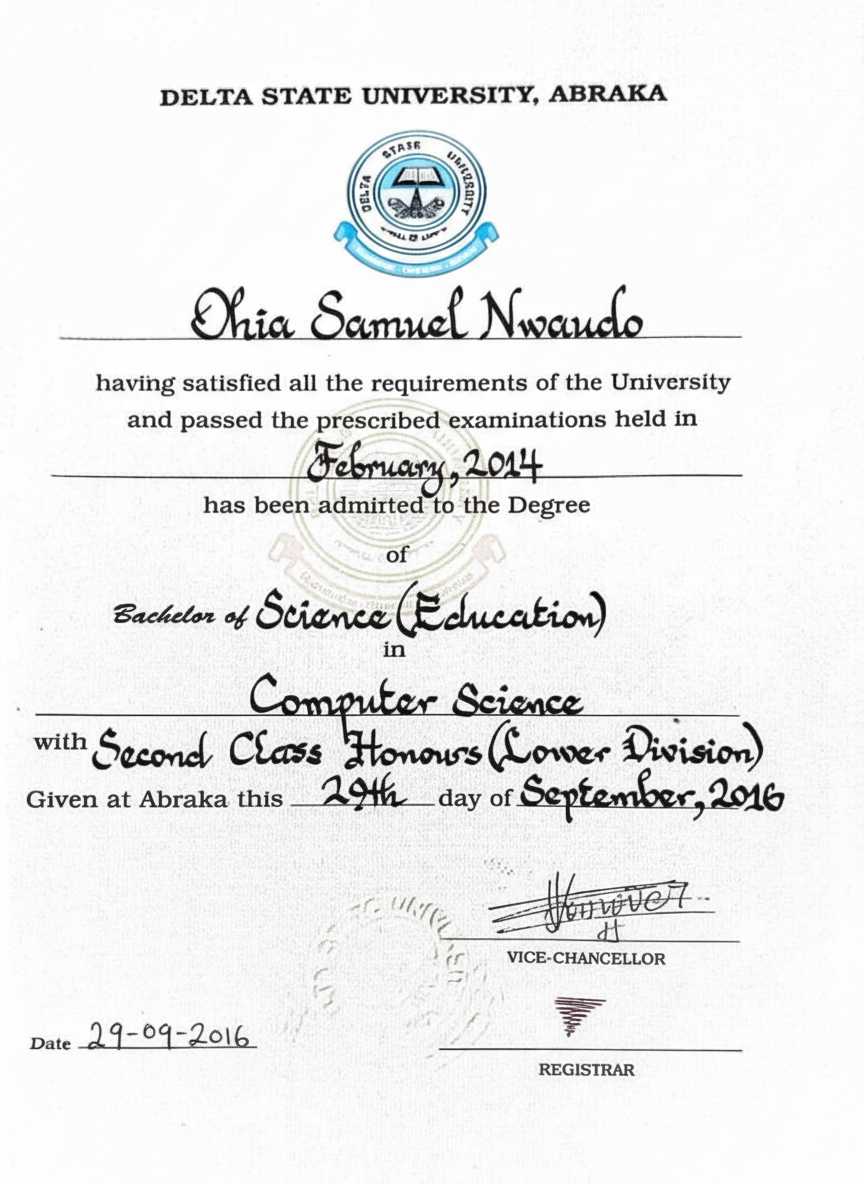 DELTA STATE UNIVERSITY, ABRAKA
DELTA STATE UNIVERSITY
Ohia Samuel Nwaudo
having satisfied all the requirements of the University
and passed the prescribed examinations held in
February, 2014
has been admirted to the Degree
of
Bachelor of Science (Education)
in
Computer Science
with Second Class Honours (Lower Division)
Given at Abraka this 29th day of September, 2016
VICE-CHANCELLOR
Date 29-09-2016
REGISTRAR